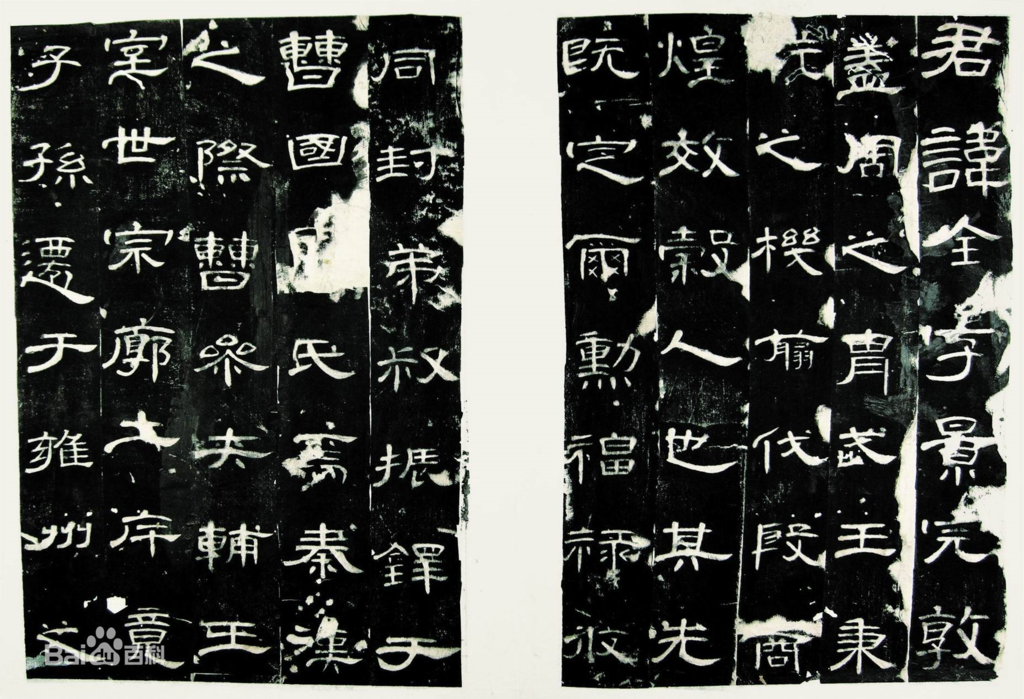 君諱全字景完敦
蓋周之胄武王秉
之機翦伐殷商
煌效穀人也其先
既定爾勳福祿攸
同封弟叔振鐸于
曹國因氏焉秦漢
之際曹參夾輔王
室世宗廓土斥竟
子孫遷于雍州之
Bai百科